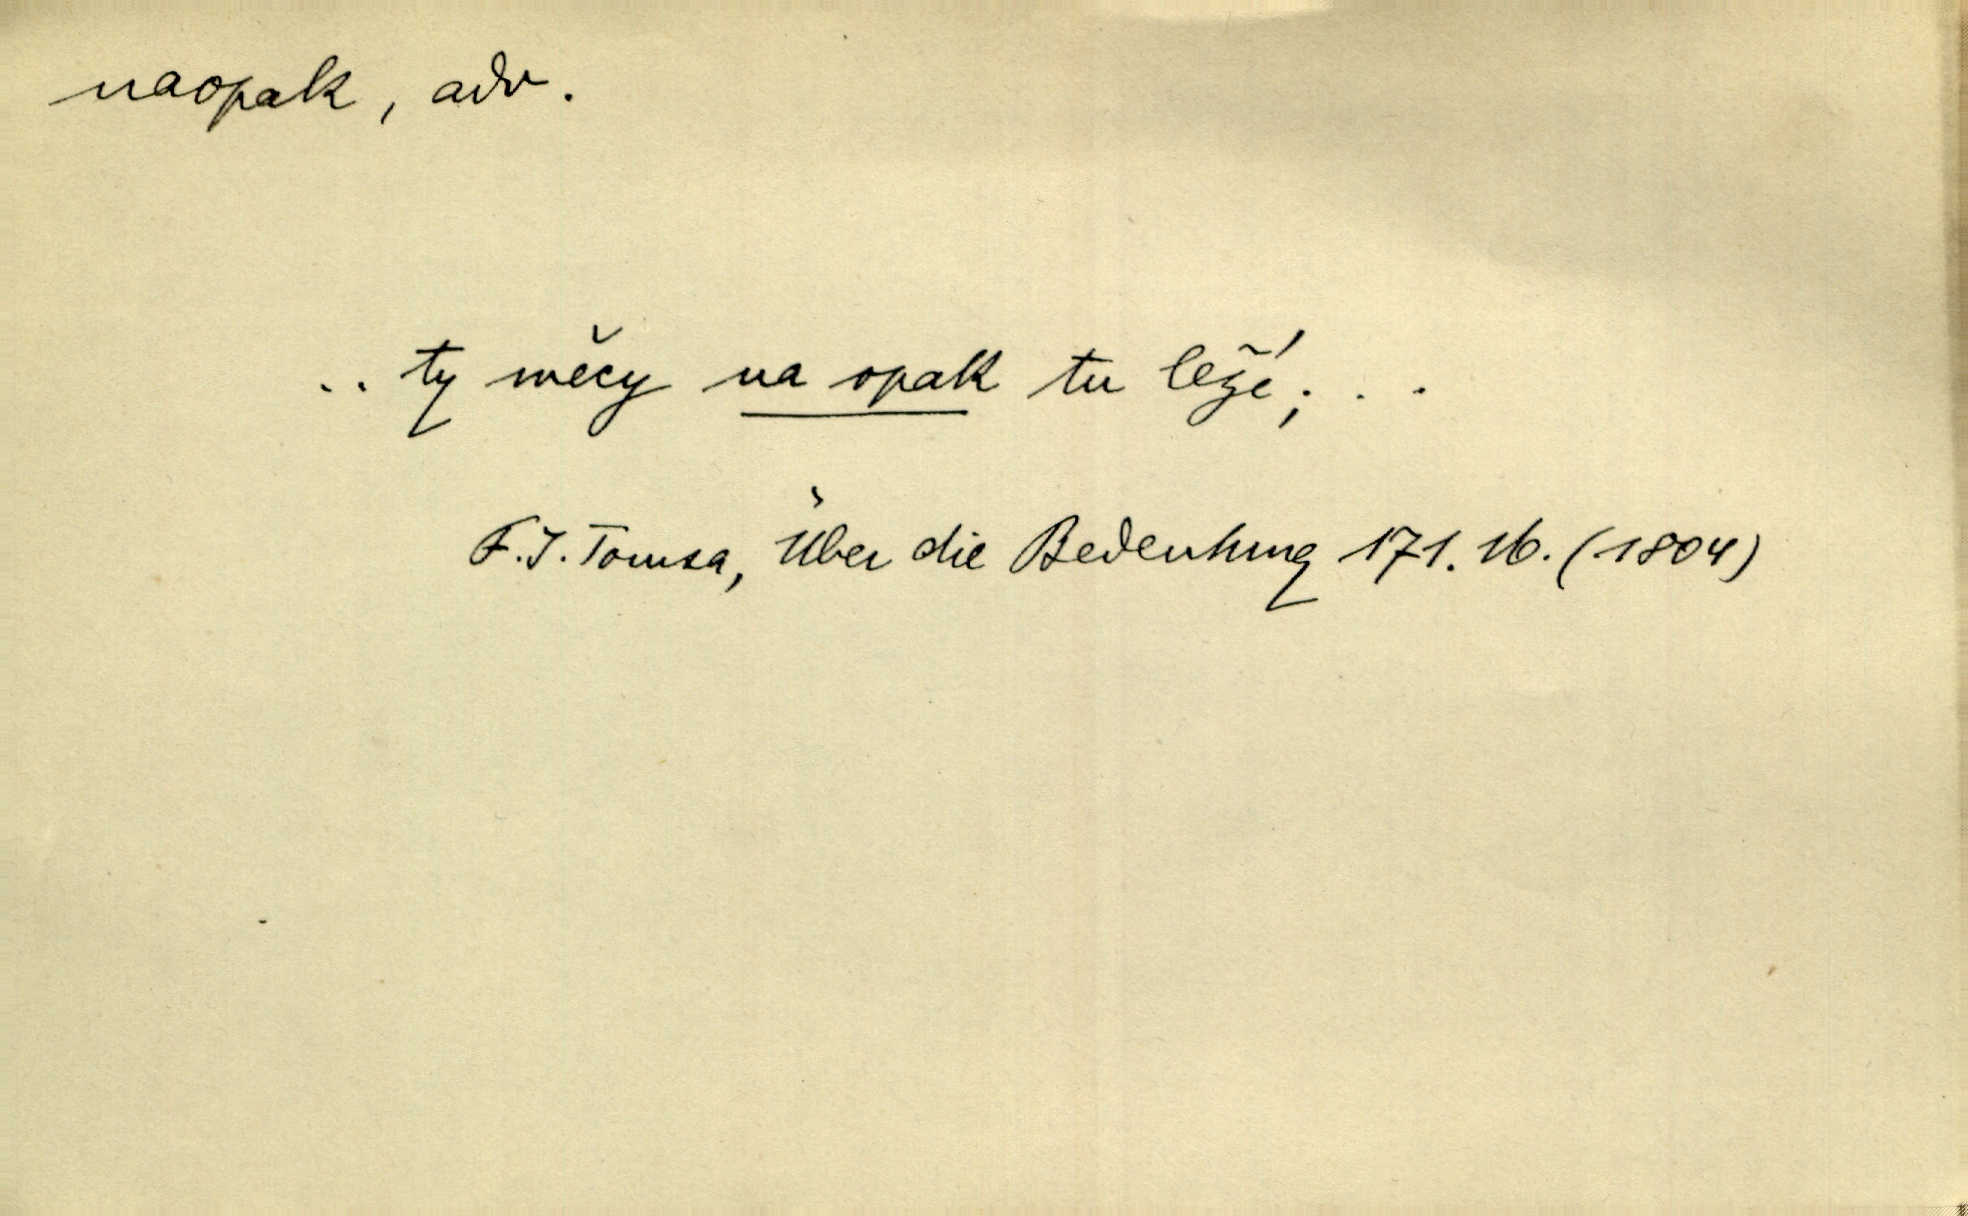 naopak, adv.
.. ty wěcy na opak tu ležé; . .
F. J. Tomsa, Über die Bedeutung 171. 16. (1804)